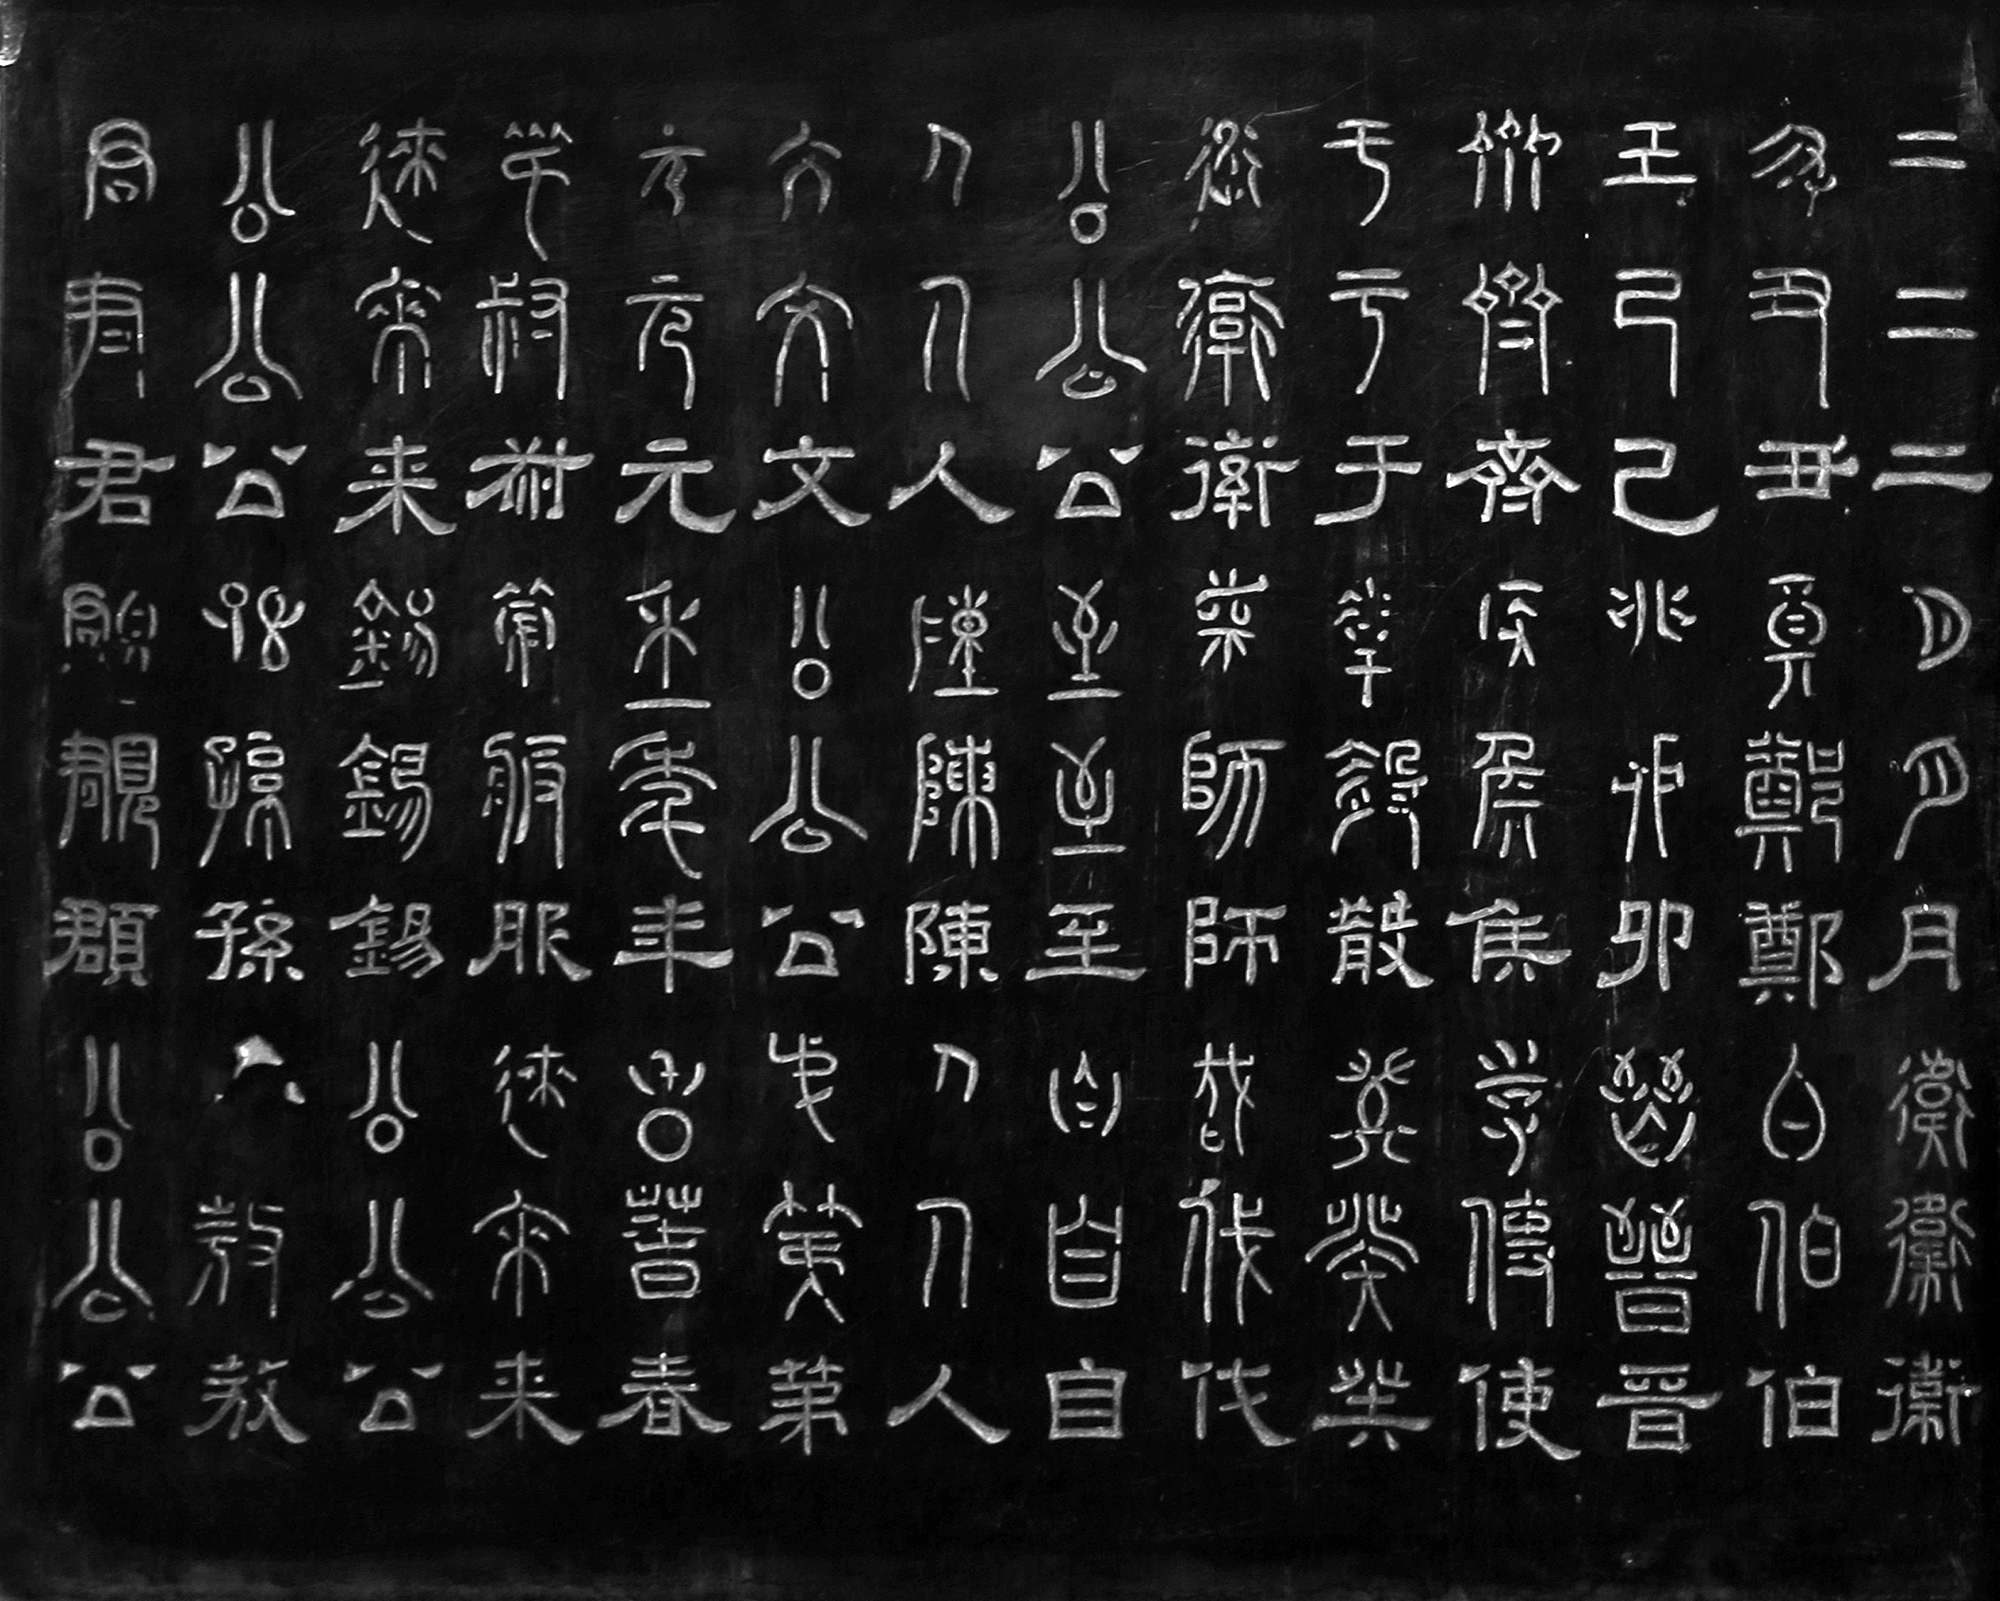 二二二月月月衛衛衛
丑丑丑鄭鄭鄭白伯伯
己己己卯卯卯晉晉晉
齊齊齊侯侯侯使使使
于于于殽殽殽癸癸癸
衛衛衛師師師伐伐伐
公公公至至至自自自
人人人陳陳陳人人人
文文文公公公弟第第
元元元年年年春春春
叔叔叔服服服來來来
來來来錫錫錫公公公
公公公孫孫孫敖敖
君君君頵頵頵公公公